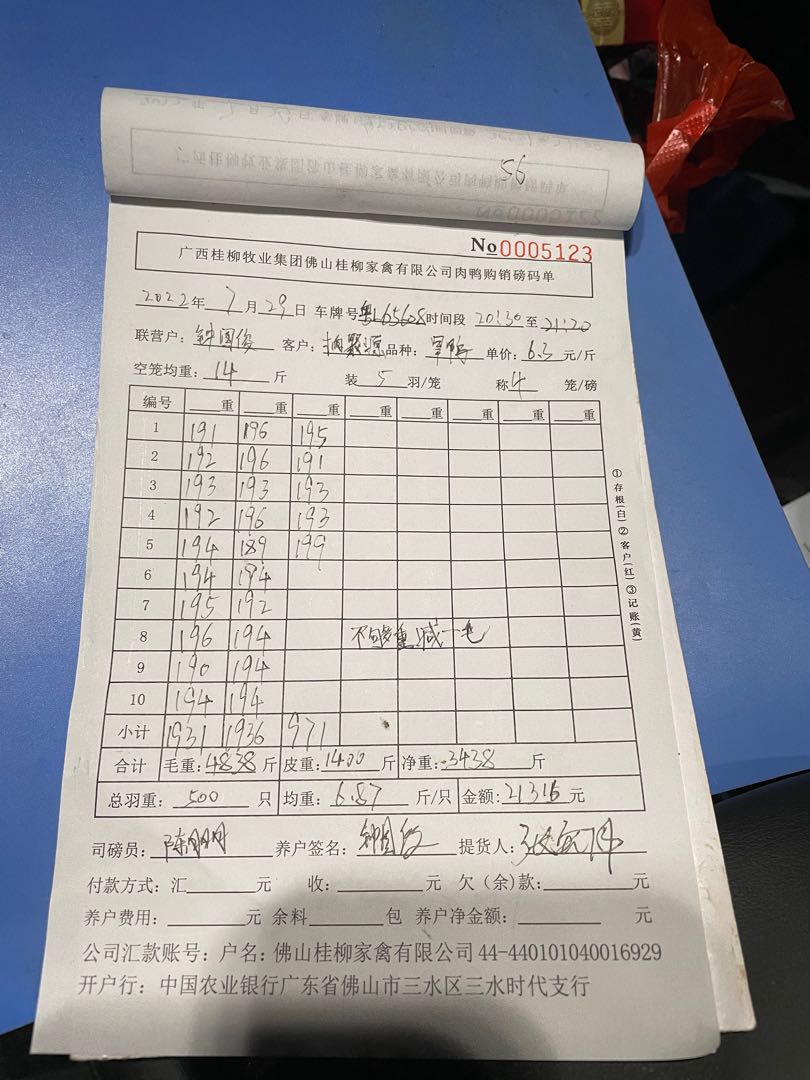 56
No 0005123
广西桂柳牧业集团佛山桂柳家禽有限公司肉鸭购销磅码单
2022年 7月29日 车牌号 时间段 20:30至21:20
联营户：钟国俊 客户： 源 品种： 单价：6.3元/斤
空笼均重：14斤 装5羽/笼 称4笼/磅
编号 重 重 重 重 重 重 重 重
1 191 196 195
2 192 196 191
3 193 193 193
4 192 196 193
5 194 189 199
6 194
7 195 192
8 196 194 不够重减一毛
9 190 194
10 194 194
小计 1931 1936 971
合计 毛重：4838斤 皮重：1400斤 净重：3438斤
总羽重：500只 均重：6.87斤/只 金额：21316元
司磅员：陈 养户签名：钟国俊 提货人：
付款方式：汇 元 收： 元 欠（余）款： 元
养户费用： 元 余料 包 养户净金额： 元
公司汇款账号：户名：佛山桂柳家禽有限公司 44-440101040016929
开户行：中国农业银行广东省佛山市三水区三水时代支行
①存根(白)②客户(红)③记账(黄)